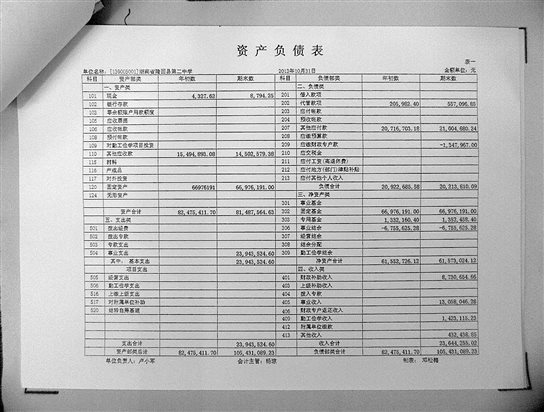 资产负债表
表一
单位名称：[139015001]湖南省隆回县第二中学 2013年10月31日 金额单位：元
科目 资产部类 年初数 期末数 科目 负债部类 年初数 期末数
一、资产类 二、负债类
101 现金 4,327.63 8,794.35 201 借入款项
102 银行存款 202 代管款项 205,982.40 557,096.65
103 零余额账户用款额度 203 应付票据
105 应收票据 204 预收账款
106 应收账款 207 其他应付款 20,716,703.18 21,004,680.24
108 预付账款 208 应缴预算款
109 对勤工俭学项目投资 209 应缴财政专户款 -1,347,967.00
110 其他应收款 15,494,893.08 14,502,579.38 210 应交税金
115 材料 211 应付工资(离退休费)
116 产成品 212 应付地方(部门)津贴补贴
117 对外投资 213 应付其他个人收入
120 固定资产 66976191 66,976,191.00 负债合计 20,922,685.58 20,213,810.09
124 无形资产 三、净资产类
301 事业基金
302 固定基金 66,976,191.00 66,976,191.00
资产合计 82,475,411.70 81,487,564.63 303 专用基金 1,332,160.40
五、支出类 306 事业结余 -6,755,625.28 -6,755,625.28
501 拨出经费 307 经营结余
502 拨出专款 308 结余分配
503 专款支出 309 勤工俭学结余
504 事业支出 23,943,524.60 净资产合计 61,552,726.12 61,573,024.12
其中：基本支出 23,943,524.60 四、收入类
项目支出 401 财政补助收入 8,730,654.65
505 经营支出 403 上级补助收入
506 勤工俭学支出 404 拨入专款
516 上缴上级支出 405 事业收入 13,058,046.28
517 对附属单位补助 406 财政专户返还收入
520 结转自筹基建 409 勤工俭学收入 1,423,115.23
412 附属单位缴款
413 其他收入 432,438.85
支出合计 23,943,524.60 收入合计 23,644,255.02
资产部类总计 82,475,411.70 105,431,089.23 负债部类合计 82,475,411.70 105,431,089.23
单位负责人：卢小军 会计主管：杨琼 制表：邓松梅